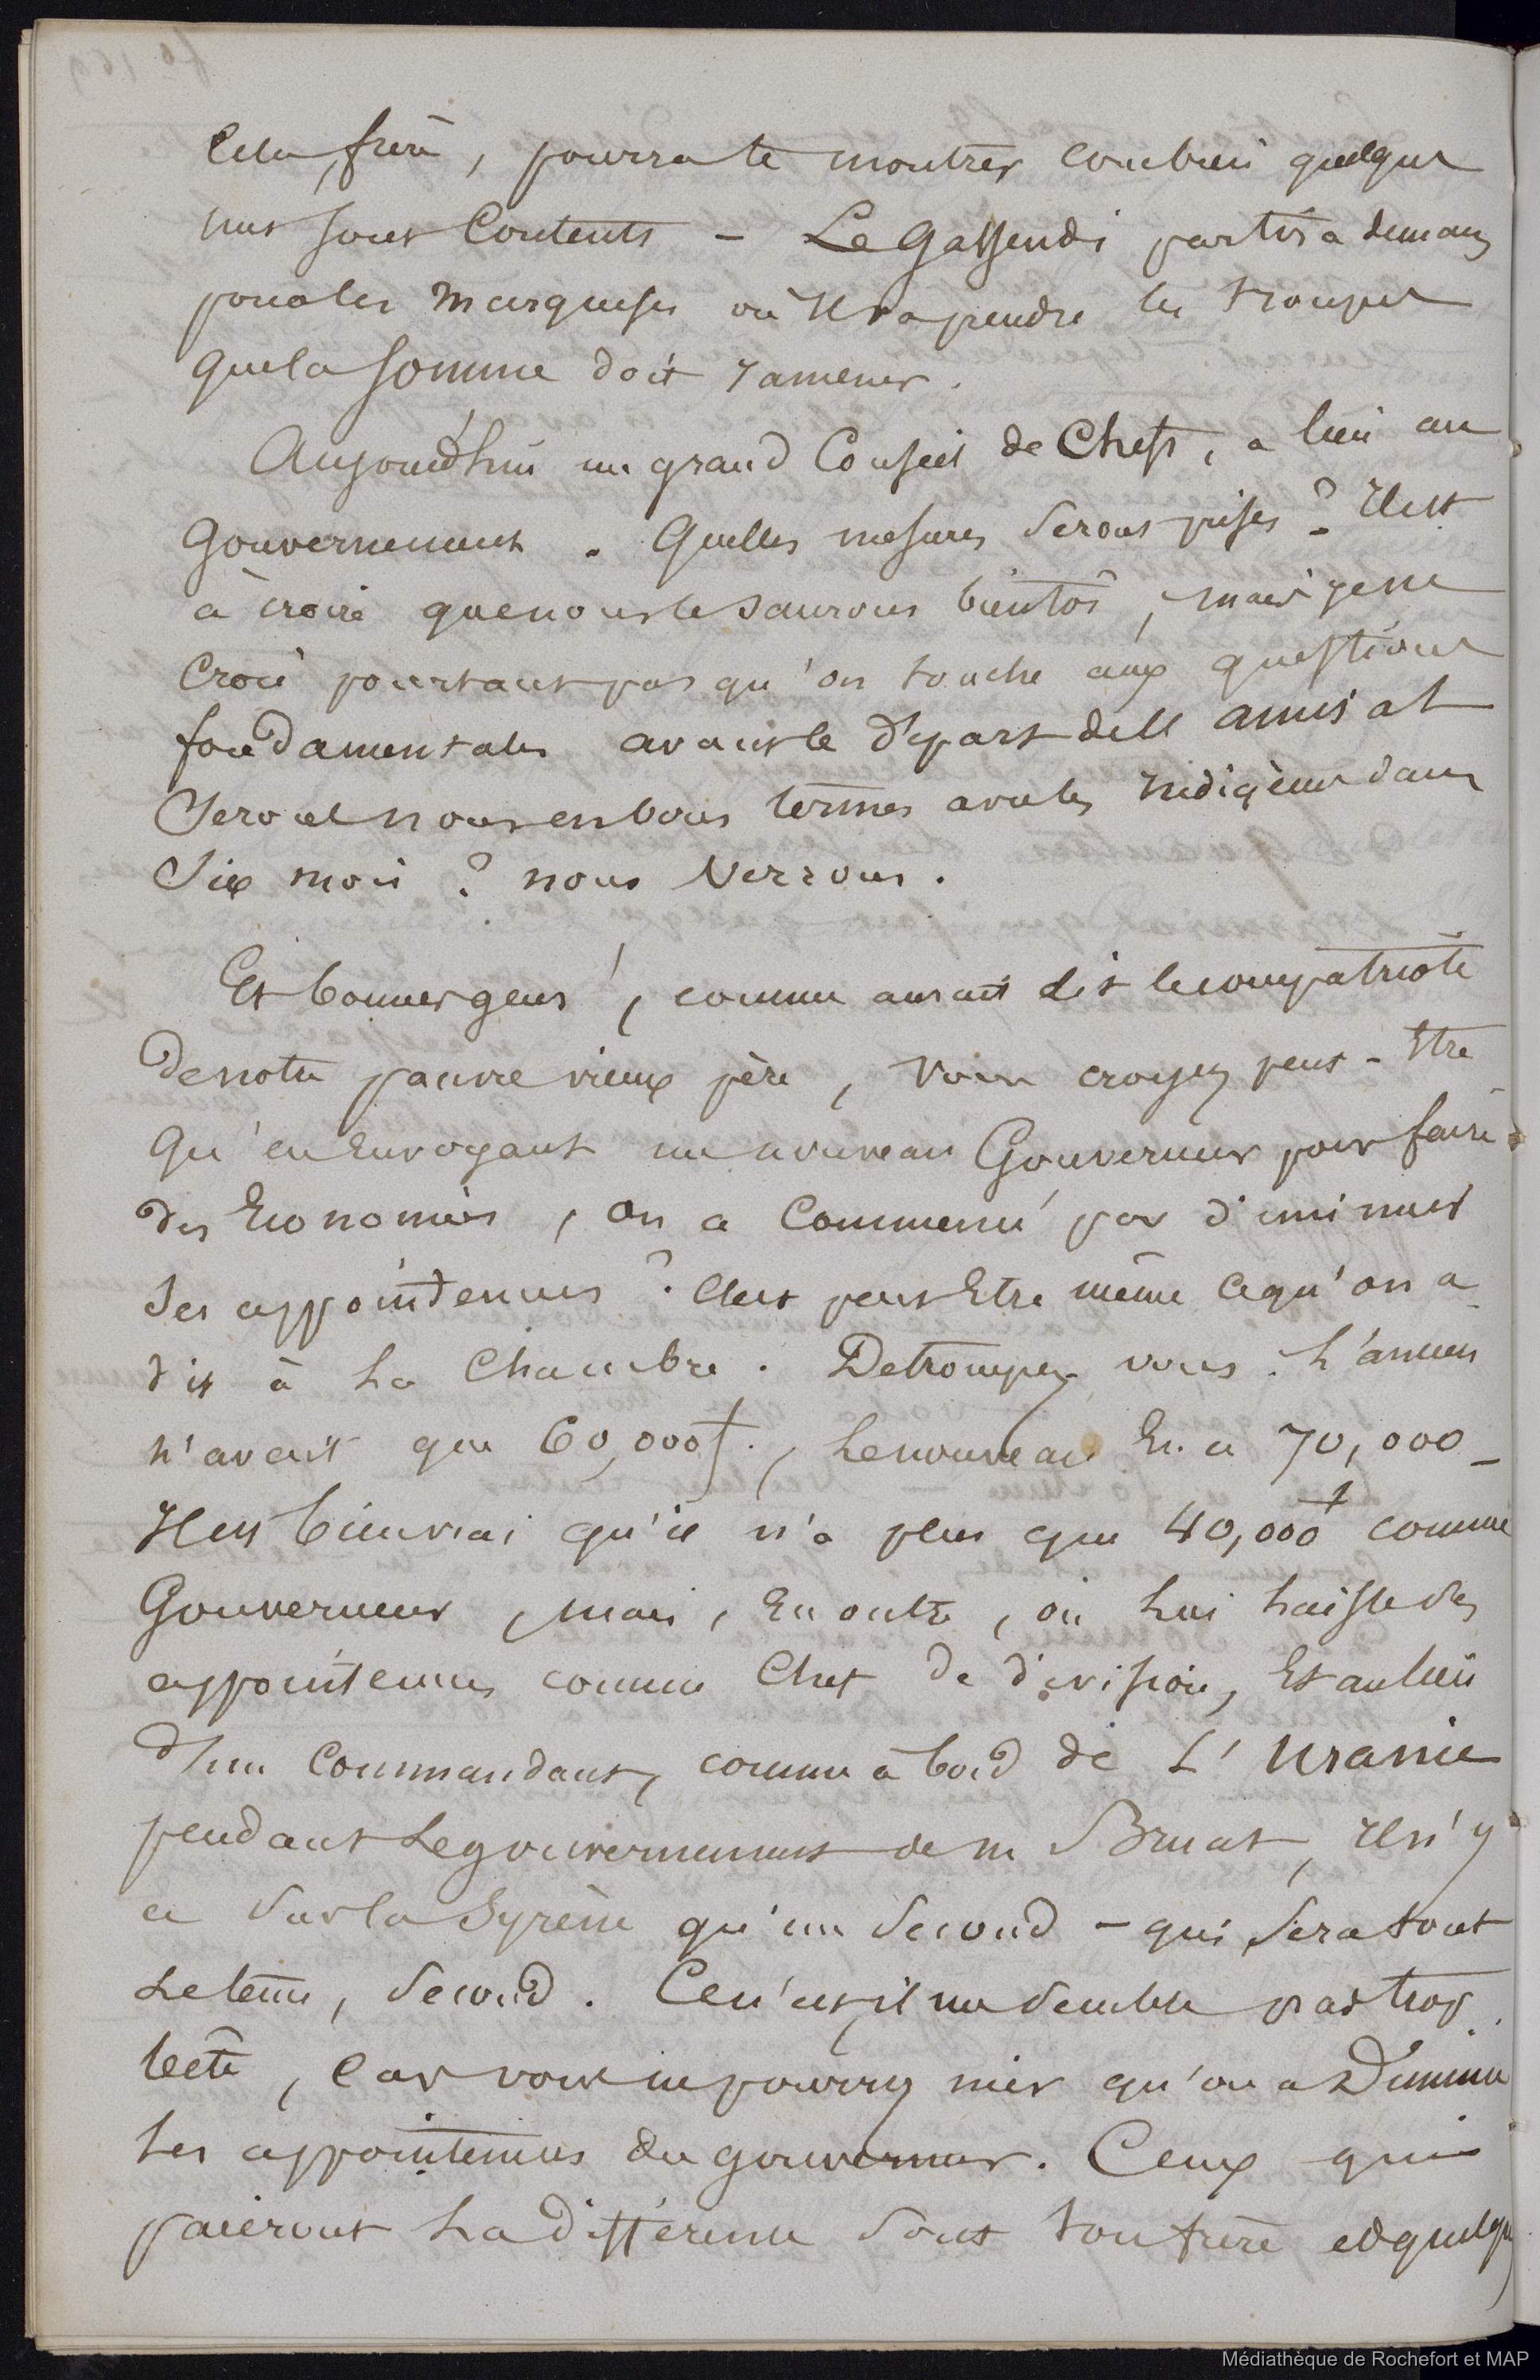 Cela, frère, pourra te montrer combien quelques
uns sont contents – Le Gassendi partira demain
pour les Marquises où Il va prendre les troupes
que la Somme doit ramener.
Aujourd'hui un grand Conseil de Chefs, a lieu au
Gouvernement. Quelles mesures seront prises ? Il est
à croire que nous le saurons bientôt, mais je ne
crois pourtant pas qu'on touche aux questions
fondamentales avant le départ de l'amiral
Serons nous en bons termes avec les Indigènes dans
Six mois ? nous verrons.
Et bonnes gens !, comme aurait dit le compatriote
de notre pauvre vieux père, vous croyez peut-Etre
qu'en Envoyant un nouveau Gouverneur pour faire
des Economies, on a commencé par diminuer
ses appointemens ? C'est peut Etre même ce qu'on a
dit à la Chambre. Detrompez vous. L'ancien
n'avait que 60,000 f., Le nouveau En a 70,000 –
Il est bien vrai qu'il n'a plus que 40,000 f comme
Gouverneur, mais, En outre, on lui laisse ses
appointemens comme Chef de division, Et au lieu
d'un Commandant, comme à bord de L'Uranie
pendant Le gouvernement de M Bruat, Il n'y
a sur la Syrène qu'un second – qui sera tout
Le tems, second. Ce n'est, il me semble pas trop
bête, car vous ne pourrez nier qu'on a Diminué
Les appointemens du gouverneur. Ceux qui
paieront La différence sont ton frère et quelques
Médiathèque de Rochefort et MAP